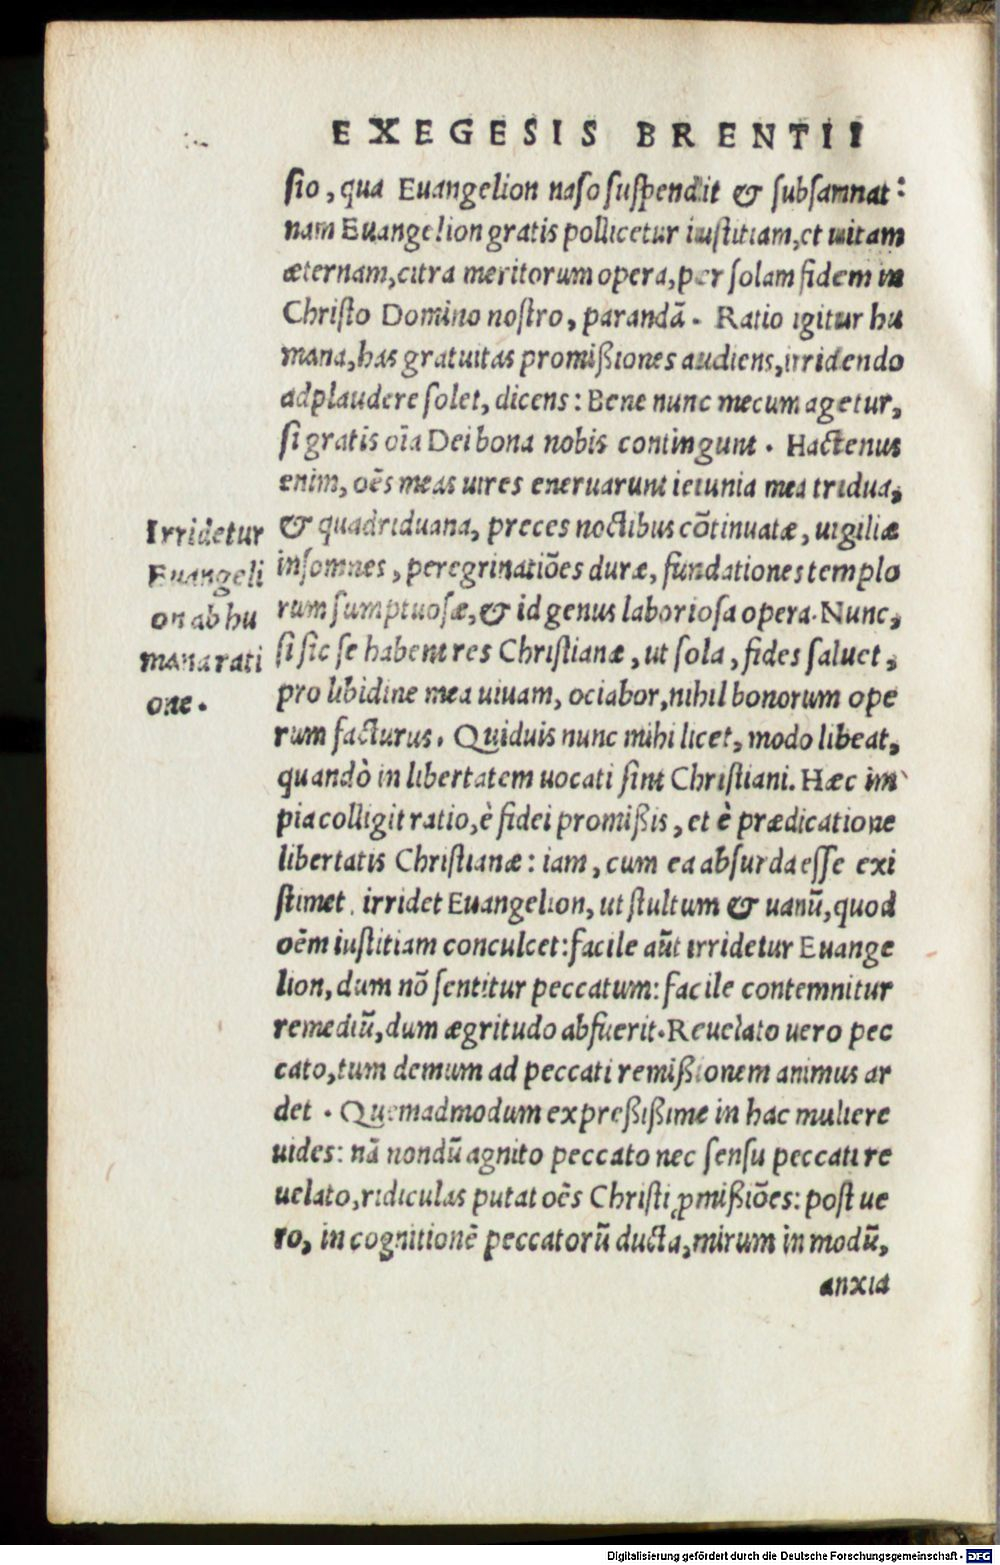 EXEGESIS BRENTII
sio, qua Euangelion naso suspendit & subsannat:
nam Euangelion gratis pollicetur iustitiam, et uitam
æternam, citra meritorum opera, per solam fidem in
Christo Domino nostro, parandā. Ratio igitur hu
mana, has gratuitas promißiones audiens, irridendo
adplaudere solet, dicens: Bene nunc mecum agetur,
si gratis oīa Dei bona nobis contingunt. Hactenus
enim, oēs meas uires eneruarunt ieiunia mea tridua,
& quadriduana, preces noctibus cōtinuatæ, uigiliæ
insomnes, peregrinatiōes duræ, fundationes templo
rum sumptuosæ, & id genus laboriosa opera. Nunc,
si sic se habent res Christianæ, ut sola, fides saluet,
pro libidine mea uiuam, ociabor, nihil bonorum ope
rum facturus. Quiduis nunc mihi licet, modo libeat,
quandò in libertatem uocati sint Christiani. Hæc im
pia colligit ratio, è fidei promißis, et è prædicatione
libertatis Christianæ: iam, cum ea absurda esse exi
stimet, irridet Euangelion, ut stultum & uanū, quod
oēm iustitiam conculcet: facile aūt irridetur Euange
lion, dum nō sentitur peccatum: facile contemnitur
remediū, dum ægritudo abfuerit. Reuelato uero pec
cato, tum demum ad peccati remißionem animus ar
det. Quemadmodum expreßißime in hac muliere
uides: nā nondū agnito peccato nec sensu peccati re
uelato, ridiculas putat oēs Christi ꝓmißiōes: post ue
ro, in cognitionē peccatorū ducta, mirum in modū,
anxia
Irridetur
Euangeli
on ab hu
mana rati
one.
Digitalisierung gefördert durch die Deutsche Forschungsgemeinschaft - DFG